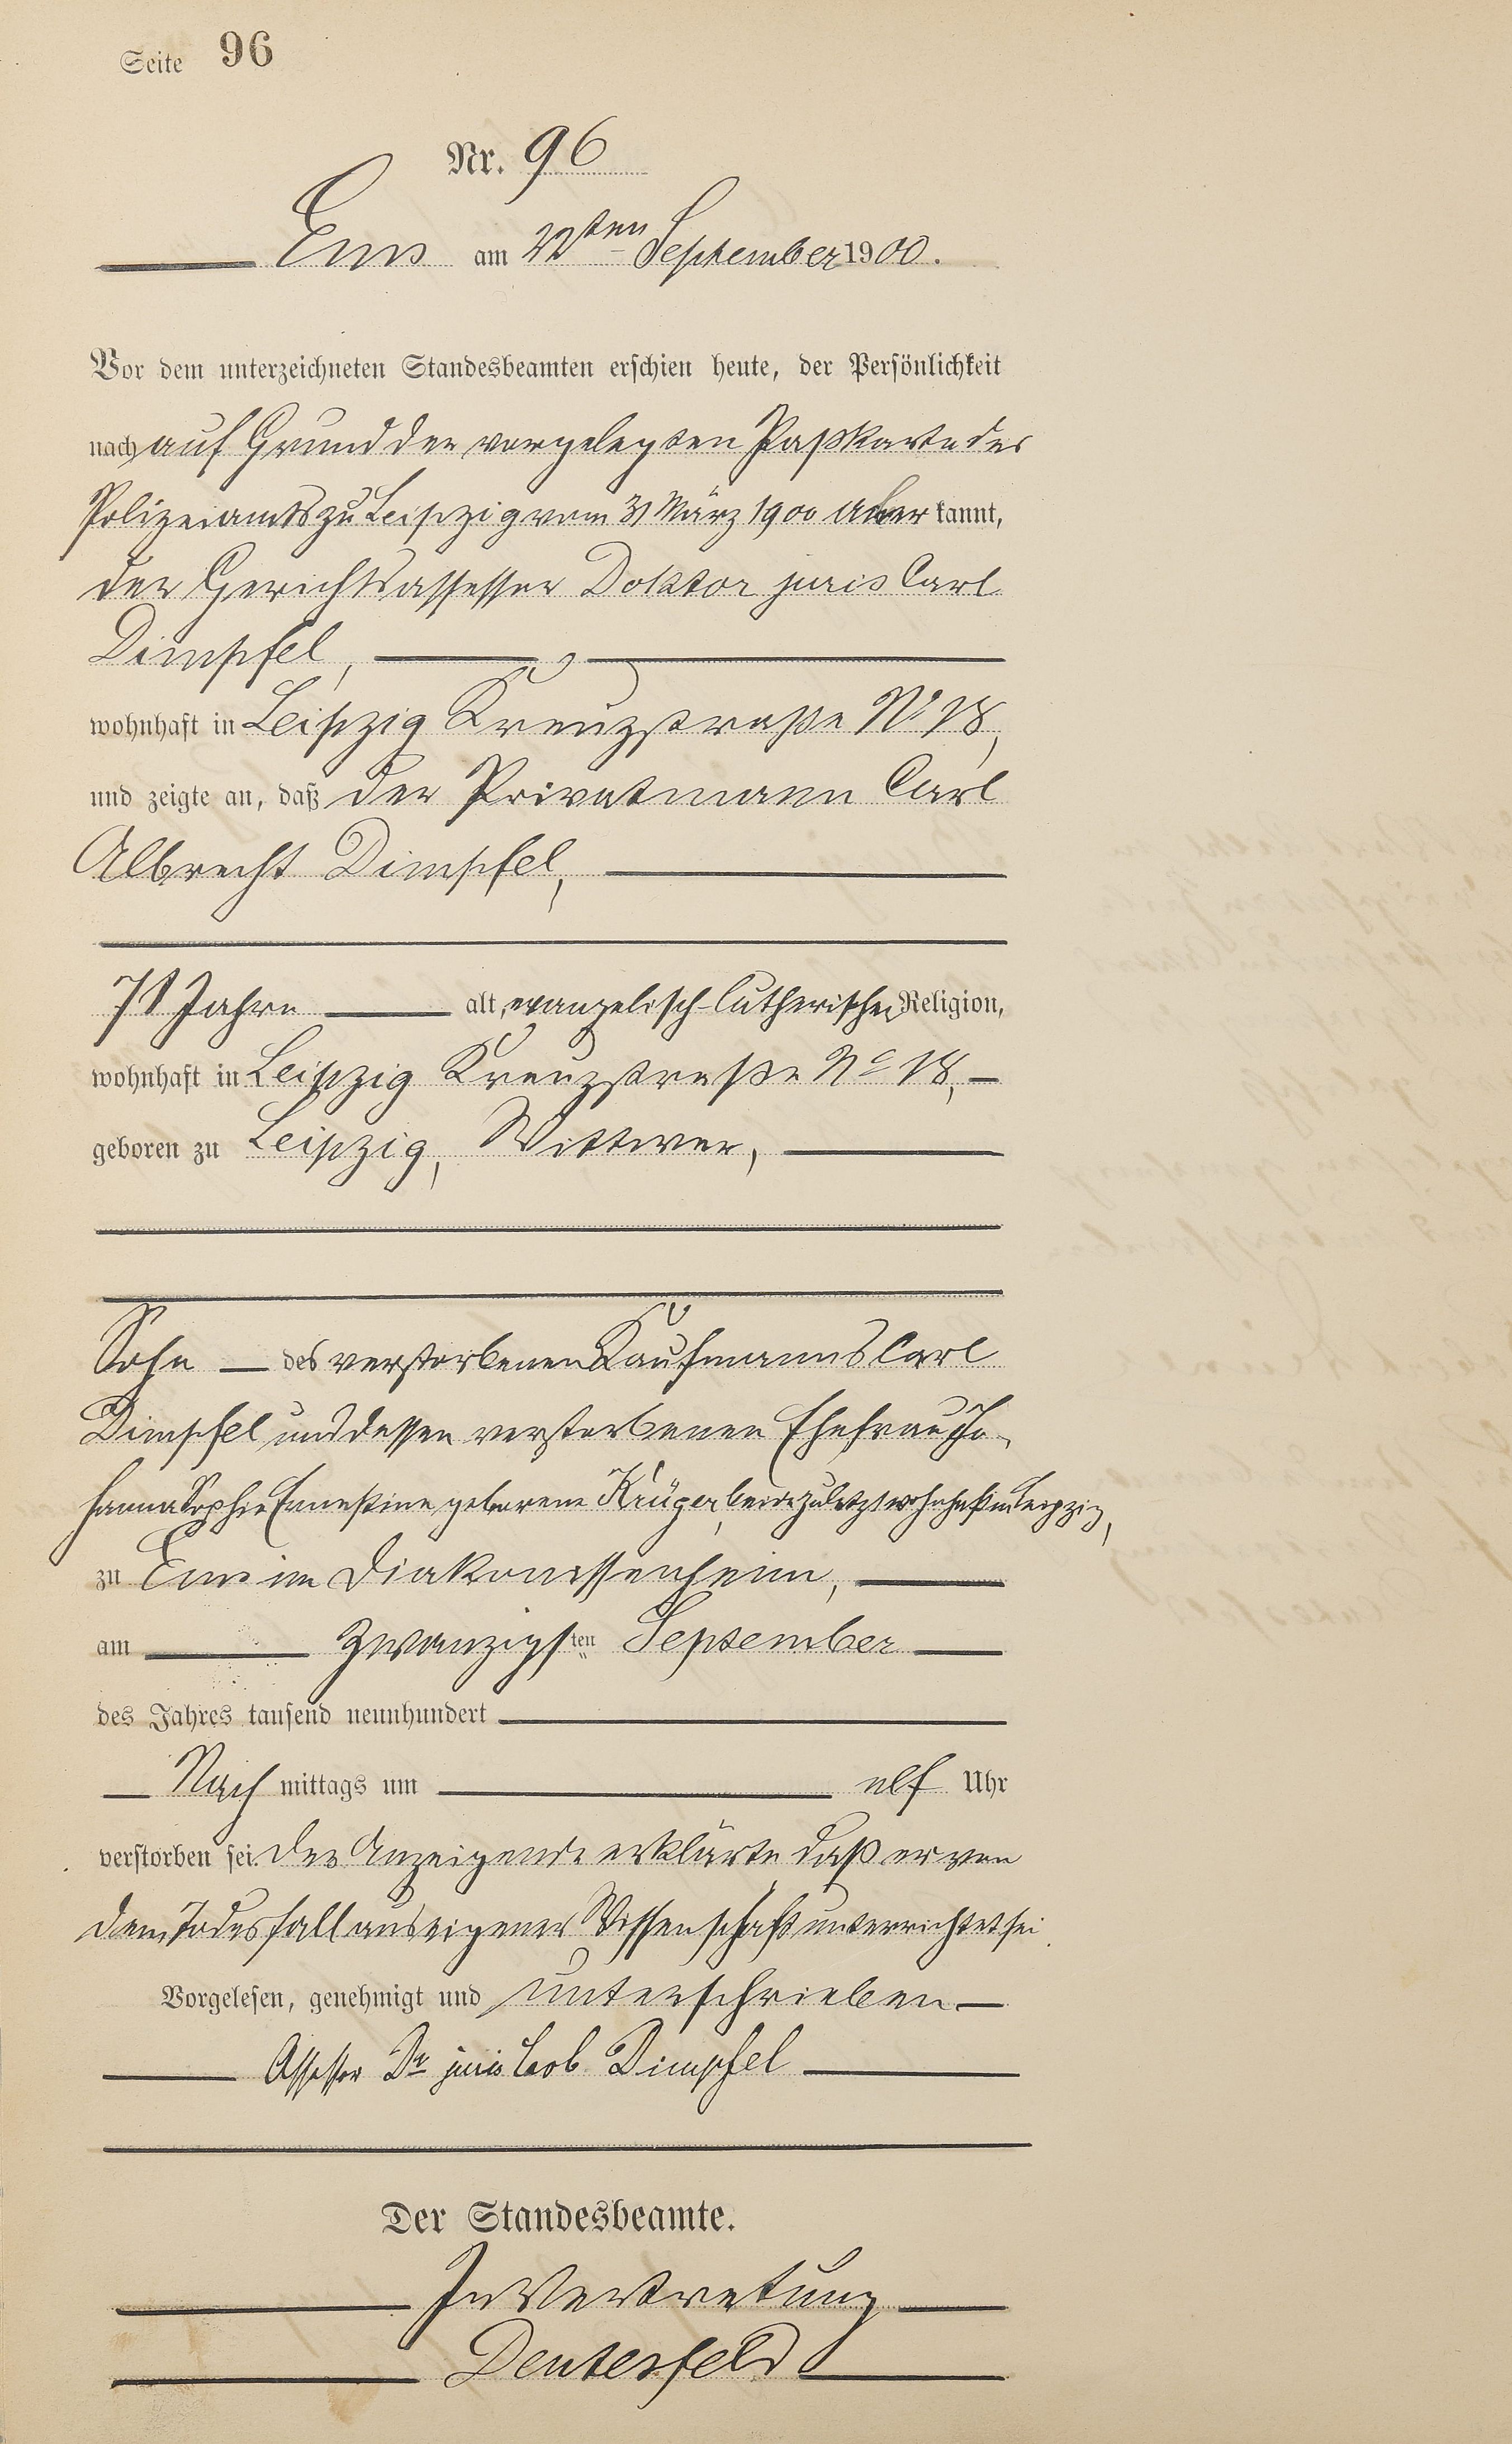 Seite 96
Nr. 96
Ems am 22ten September 1900.
Vor dem unterzeichneten Standesbeamten erschien heute, der Persönlichkeit
nach auf Grund der vorgelegten Paßkarte des
Polizeiamts zu Leipzig vom 31 März 1900 anerkannt,
der Gerichtsassessor Doktor juris Carl
Dimpfel,
wohnhaft in Leipzig Kreuzstraße No 18,
und zeigte an, daß der Privatmann Carl
Albrecht Dimpfel,
78 Jahre alt, evangelisch-lutherischer Religion,
wohnhaft in Leipzig Kreuzstraße No 18,
geboren zu Leipzig, Wittwer,
Sohn des verstorbenen Kaufmanns Carl
Dimpfel und dessen verstorbenen Ehefrau Jo-
hanna Sophie Ernestine geborene Krüger, beide zuletzt wohnhaft in Leipzig,
zu Ems im Diakonissenheim,
am zwanzigsten September
des Jahres tausend neunhundert
Nachmittags um elf Uhr
verstorben sei. Der Anzeigende erklärte, daß er von
dem Todesfall aus eigener Wissenschaft unterrichtet sei.
Vorgelesen, genehmigt und unterschrieben
Assessor Dr juris Carl Dimpfel
Der Standesbeamte.
In Vertretung
Deusterfeld